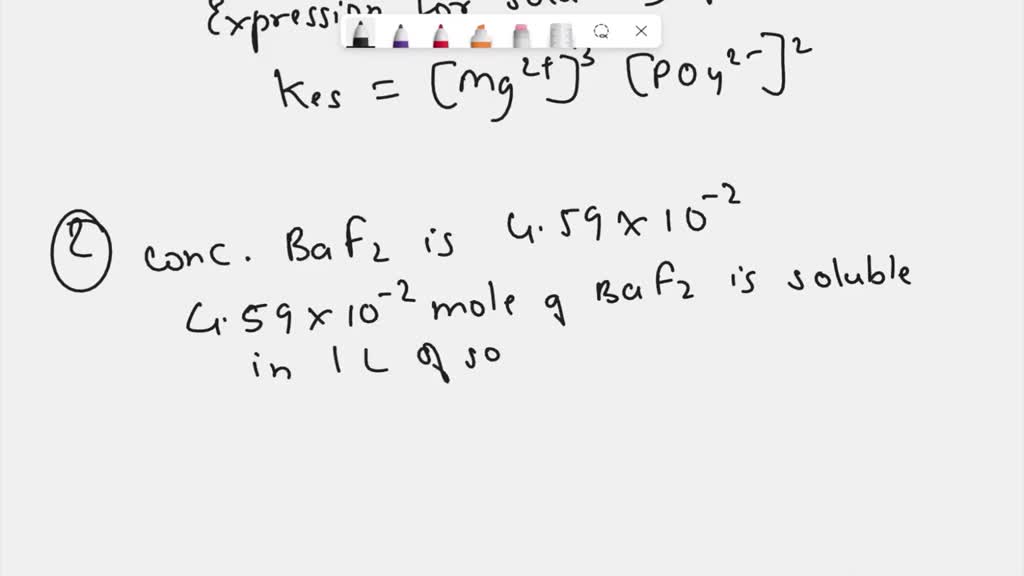 Expression for
Kes = [Mg²⁺]³ [PO₄²⁻]²
② conc. BaF₂ is 4.59 x 10⁻²
4.59 x 10⁻² mole of BaF₂ is soluble
in 1 L of so